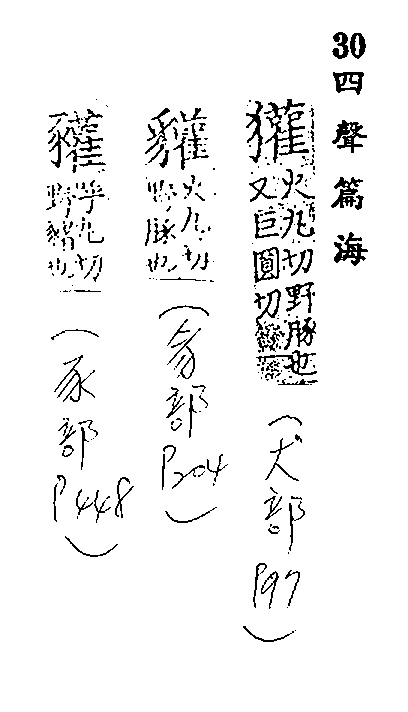 30四聲篇海
獾
火丸切野豚也
又巨圓切
(犬部
P97)
貛
火丸切
野豚也
(豸部
P204)
豲
呼丸切
野豬也
(豕部
P448)